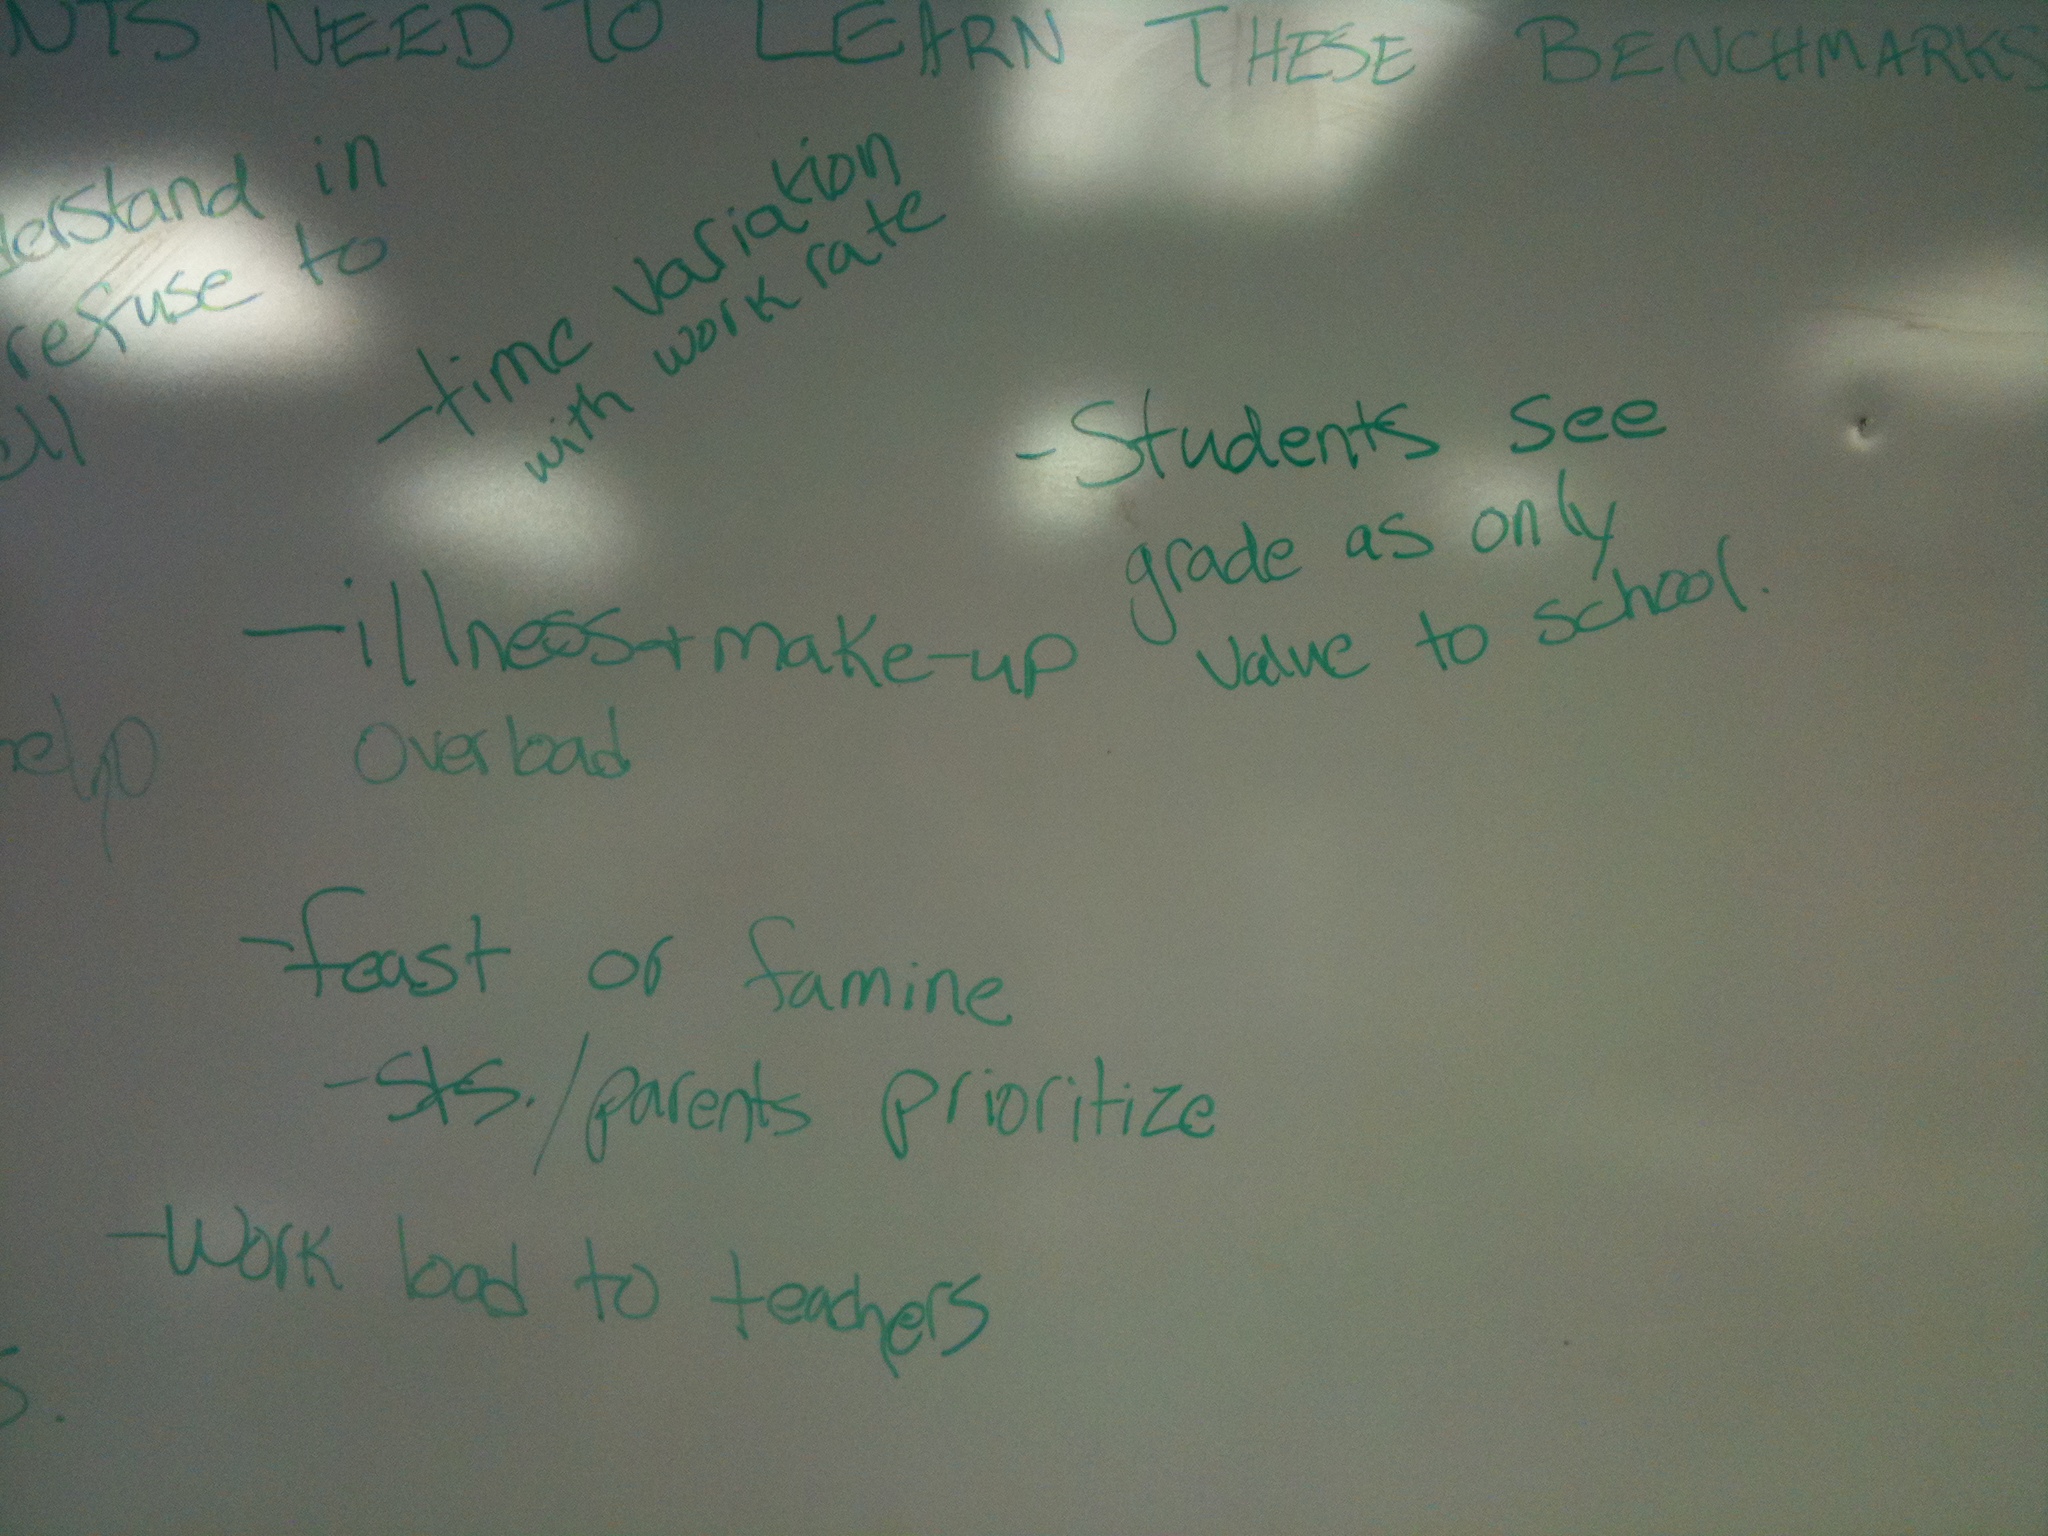 NTS NEED TO LEARN THESE BENCHMARKS
derstand in
refuse to
- time variation
with work rate
- Students see
grade as only
value to school.
- illness + make-up
overload
help
- feast or famine
- sts./parents prioritize
- Work load to teachers
s.